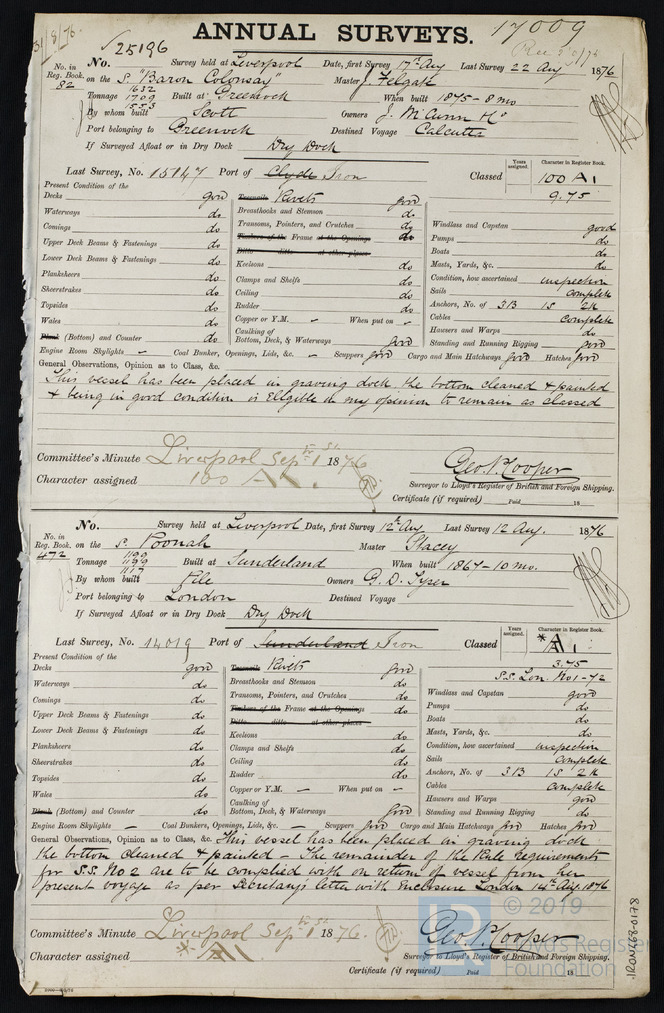 31/8/76
ANNUAL SURVEYS.
17009
No. 25196 Survey held at Liverpool Date, first Survey 17th Aug Last Survey 22 Aug 1876
No. in Reg. Book. 82 on the S. "Baron Colonsay" Master J. Felgate
Tonnage 1632 1709 1553 Built at Greenock When built 1875-8 mo
By whom built Scott Owners J. McCunn & Co
Port belonging to Greenock Destined Voyage Calcutta
If Surveyed Afloat or in Dry Dock Dry Dock
Last Survey, No. 15147 Port of Clyde Iron Classed
Years assigned. Character in Register Book.
100 A1
9.75
Present Condition of the
Decks good
Waterways do
Comings do
Upper Deck Beams & Fastenings do
Lower Deck Beams & Fastenings do
Planksheers do
Sheerstrakes do
Topsides do
Wales do
Plank (Bottom) and Counter do
Treenails Rivets good
Breasthooks and Stemson do
Transoms, Pointers, and Crutches do
Timbers of the Frame at the Openings do
Ditto ditto at other places
Keelsons do
Clamps and Shelfs do
Ceiling do
Rudder do
Copper or Y.M. – When put on –
Caulking of Bottom, Deck, & Waterways good
Windlass and Capstan good
Pumps do
Boats do
Masts, Yards, &c. do
Condition, how ascertained inspection
Sails complete
Anchors, No. of 3B 1S 2K
Cables complete
Hawsers and Warps do
Standing and Running Rigging good
Engine Room Skylights – Coal Bunker, Openings, Lids, &c. – Scuppers good Cargo and Main Hatchways good Hatches good
General Observations, Opinion as to Class, &c.
This vessel has been placed in graving dock the bottom cleaned & painted
& being in good condition is Eligible in my opinion to remain as classed
Committee's Minute Liverpool Sept 1st 1876
Character assigned 100 A1.
Geo. P. Cooper
Surveyor to Lloyd's Register of British and Foreign Shipping.
Certificate (if required) Paid 18
No. Survey held at Liverpool Date, first Survey 12th Aug Last Survey 12 Aug. 1876
No. in Reg. Book. 472 on the S. Poonah Master Stacey
Tonnage 1199 1199 1117 Built at Sunderland When built 1867-10 mo.
By whom built Pile Owners G. D. Tyser
Port belonging to London Destined Voyage
If Surveyed Afloat or in Dry Dock Dry Dock
Last Survey, No. 14019 Port of Sunderland Iron Classed
Years assigned. Character in Register Book.
*A1
3.75
S.S. Lon. No 1-72
Present Condition of the
Decks good
Waterways do
Comings do
Upper Deck Beams & Fastenings do
Lower Deck Beams & Fastenings do
Planksheers do
Sheerstrakes do
Topsides do
Wales do
Plank (Bottom) and Counter do
Treenails Rivets good
Breasthooks and Stemson do
Transoms, Pointers, and Crutches do
Timbers of the Frame at the Openings do
Ditto ditto at other places
Keelsons do
Clamps and Shelfs do
Ceiling do
Rudder do
Copper or Y.M. – When put on –
Caulking of Bottom, Deck, & Waterways good
Windlass and Capstan good
Pumps do
Boats do
Masts, Yards, &c. do
Condition, how ascertained inspection
Sails complete
Anchors, No. of 3B 1S 2K
Cables complete
Hawsers and Warps good
Standing and Running Rigging do
Engine Room Skylights – Coal Bunkers, Openings, Lids, &c. – Scuppers good Cargo and Main Hatchways good Hatches good
General Observations, Opinion as to Class, &c. This vessel has been placed in graving dock
the bottom cleaned & painted – The remainder of the Rule requirements
for S.S. No 2 are to be complied with on return of vessel from her
present voyage as per Secretary's letter with Enclosure London 14th Aug. 1876
Committee's Minute Liverpool Sept 1st 1876.
Character assigned *A1
Geo. P. Cooper
Surveyor to Lloyd's Register of British and Foreign Shipping.
Certificate (if required) Paid 18
© 2019
Lloyd's Register Foundation
IRON468-0178